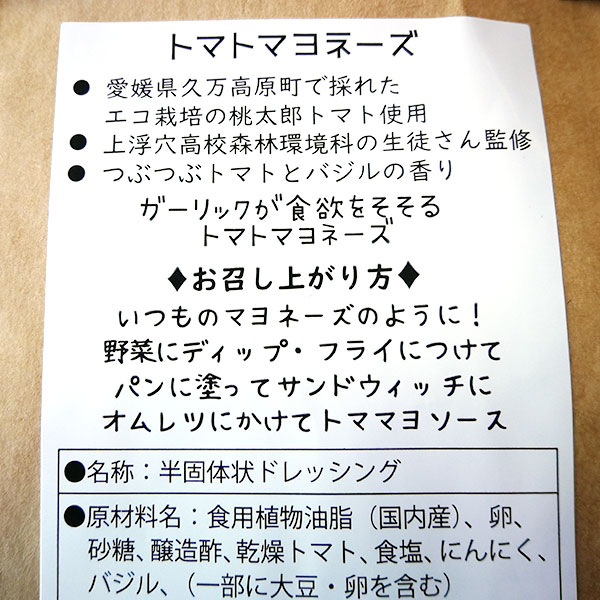 トマトマヨネーズ
● 愛媛県久万高原町で採れた
エコ栽培の桃太郎トマト使用
● 上浮穴高校森林環境科の生徒さん監修
● つぶつぶトマトとバジルの香り
ガーリックが食欲をそそる
トマトマヨネーズ
♦お召し上がり方♦
いつものマヨネーズのように！
野菜にディップ・フライにつけて
パンに塗ってサンドウィッチに
オムレツにかけてトママヨソース
●名称：半固体状ドレッシング
●原材料名：食用植物油脂（国内産）、卵、
砂糖、醸造酢、乾燥トマト、食塩、にんにく、
バジル、（一部に大豆・卵を含む）